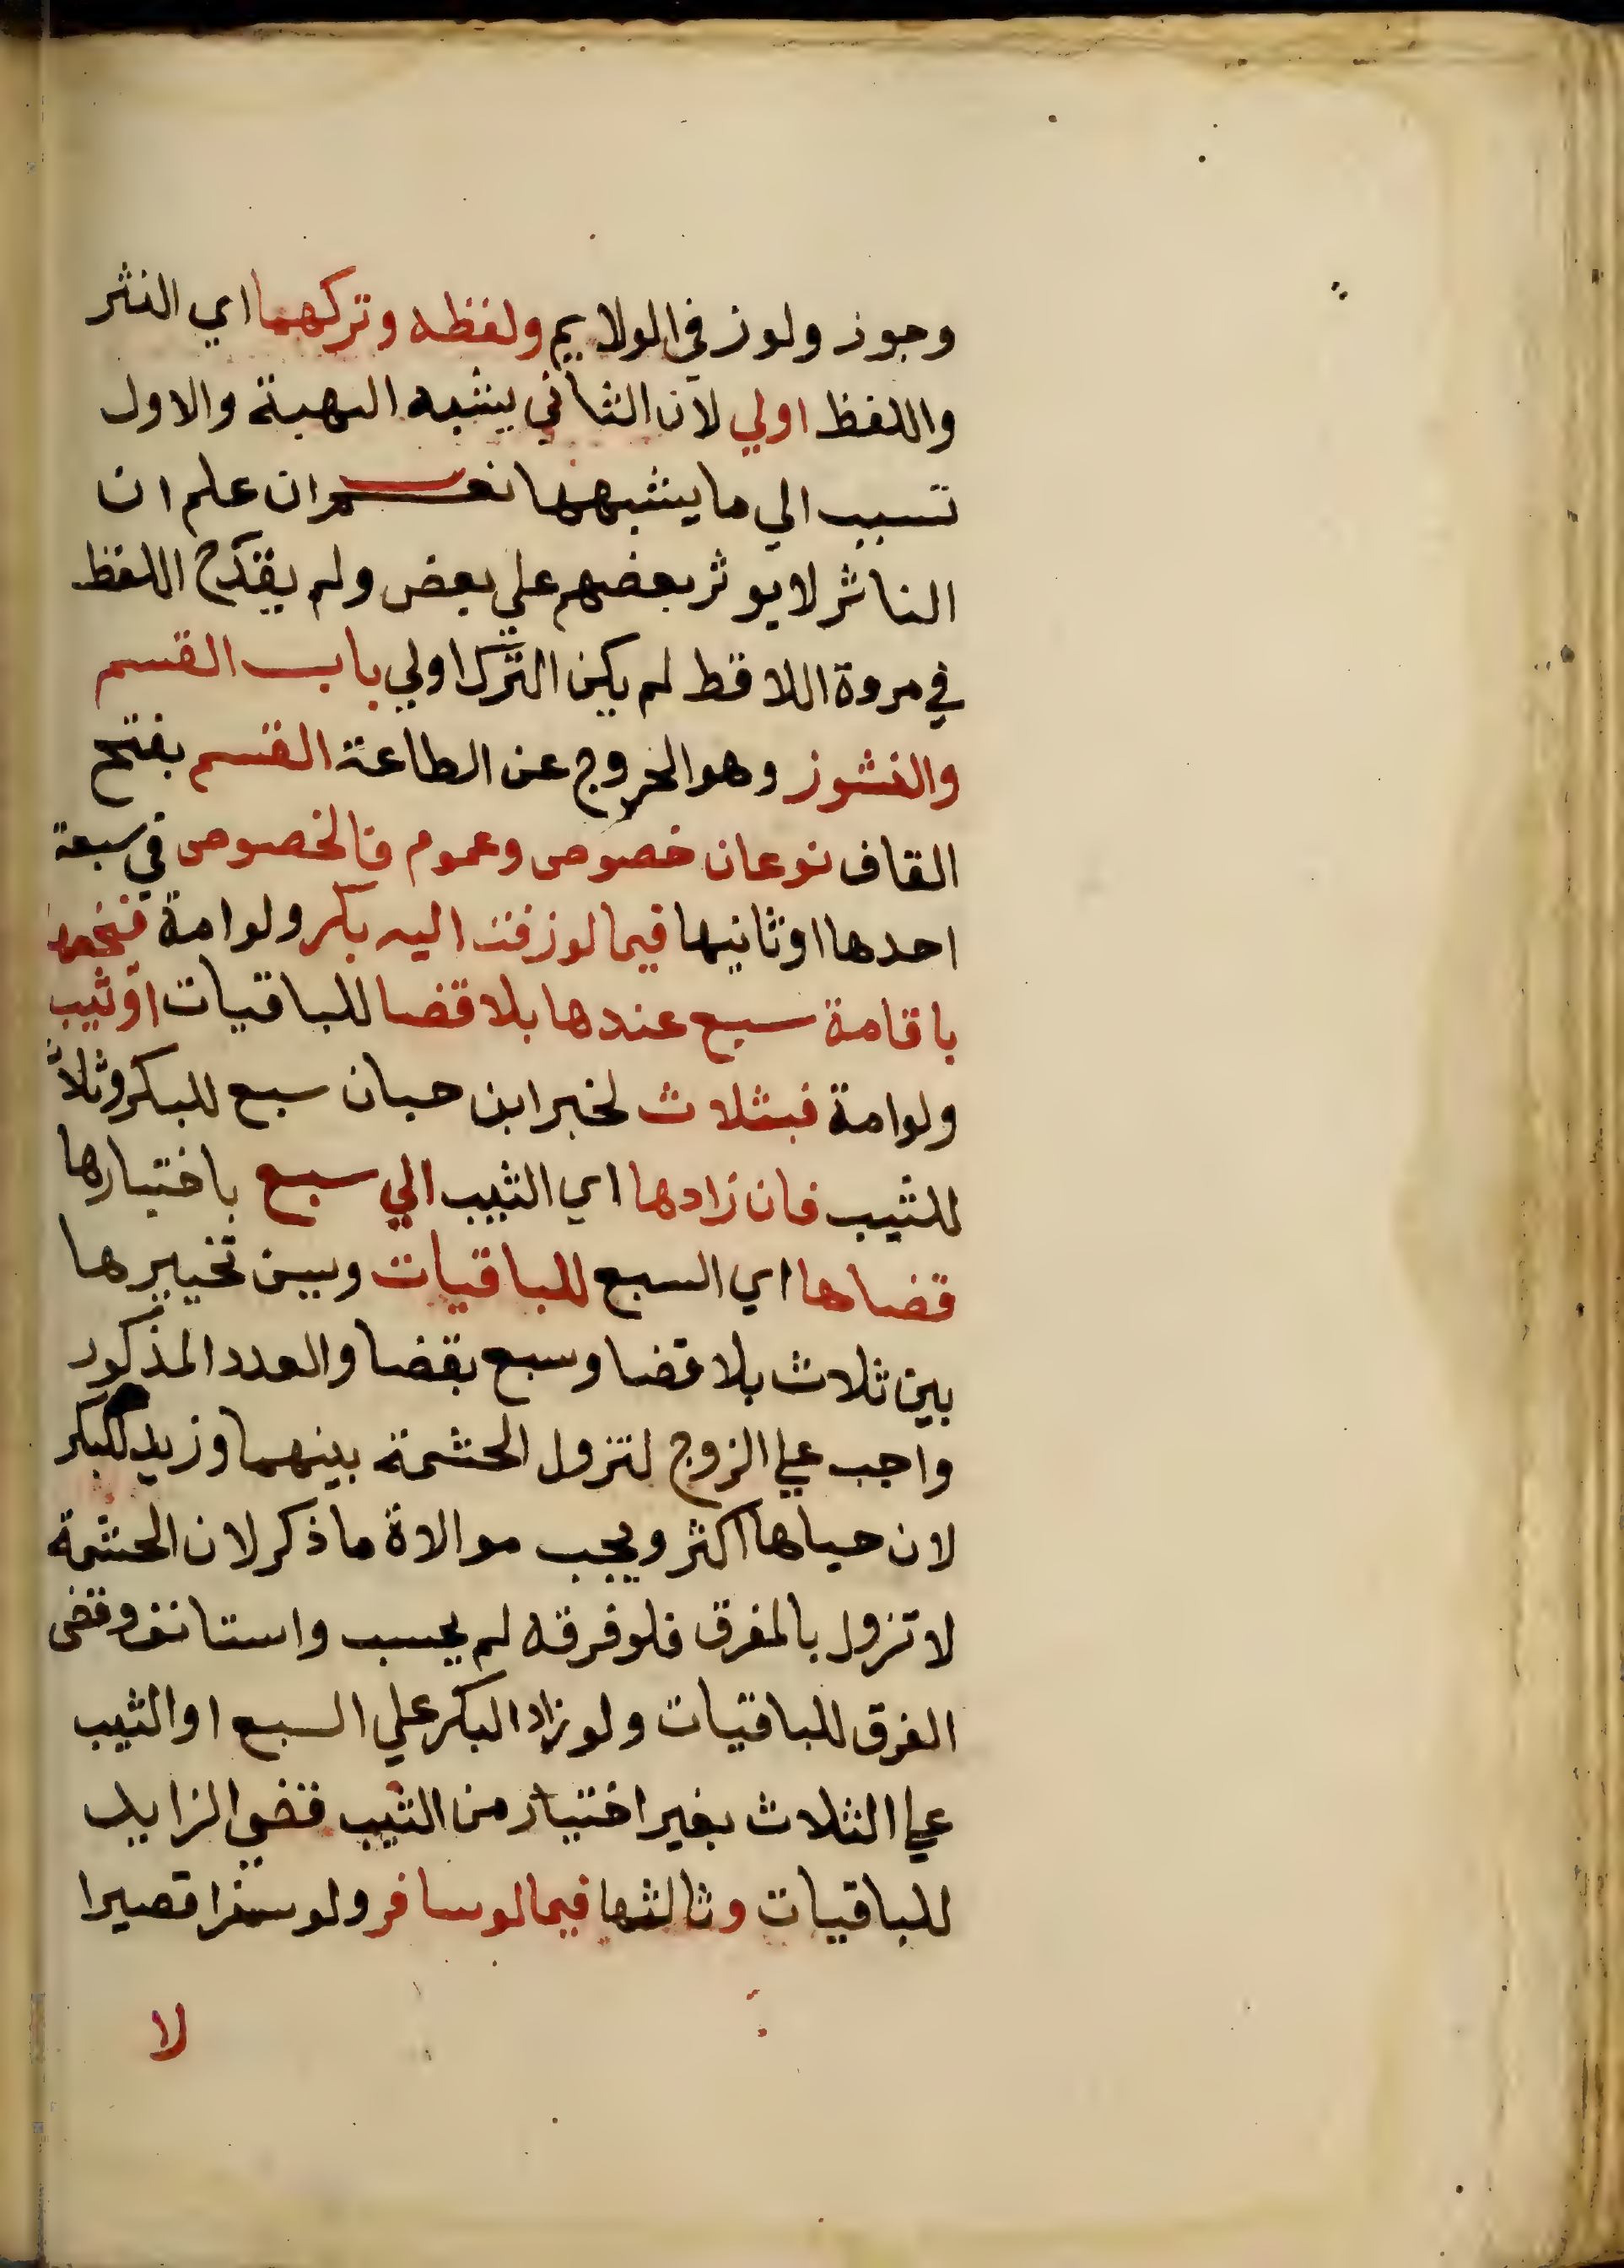 وجوز ولوز في الولايم ولفظه وتركهما اي النثر
واللفظ اولي لان الثاني يشبه النهبة والاول
تسبب الي ما يشبهها نعم ان علم ان
الناثر لا يوثر بعضهم علي بعض ولم يقدح اللفظ
في مروة اللاقط لم يكن الترك اولي باب القسم
والنشوز وهو الخروج عن الطاعة القسم بفتح
القاف نوعان خصوص وعموم فالخصوص في سبعة
احدها او ثانيها فيما لو زفت اليه بكر ولو امة فنخصها
باقامة سبع عندها بلا قضا للباقيات او ثيب
ولو امة فبثلاث لخبر ابن حبان سبع للبكر وثلاث
للثيب فان زادها اي الثيب الي سبع باختيارها
قضاها اي السبع للباقيات ويسن تخييرها
بين ثلاث بلا قضا وسبع بقضا والعدد المذكور
واجب علي الزوج لتزول الحشمة بينهما وزيد للبكر
لان حياها اكثر ويجب موالاة ما ذكر لان الحشمة
لا تزول بالمفرق فلو فرقه لم يحسب واستانف وقضى
الفرق للباقيات ولو زاد البكر علي السبع او الثيب
علي الثلاث بغير اختيار من الثيب قضي الزايد
للباقيات وثالثها فيما لو سافر ولو سفرا قصيرا
لا